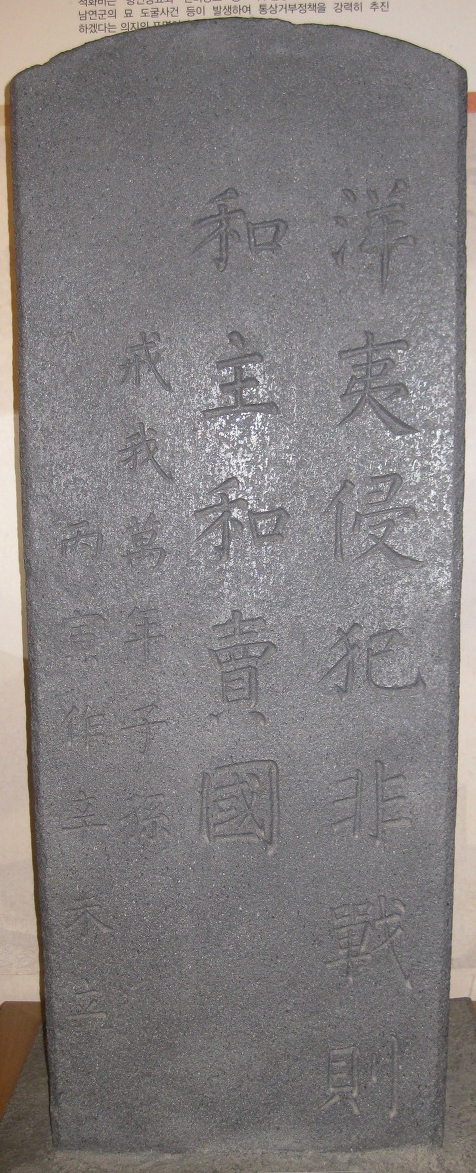 척화비는
남연군의 묘 도굴사건 등이 발생하여 통상거부정책을 강력히 추진
하겠다는 의지의
洋夷侵犯非戰則
和主和賣國
戒我萬年子孫
丙寅作辛未立